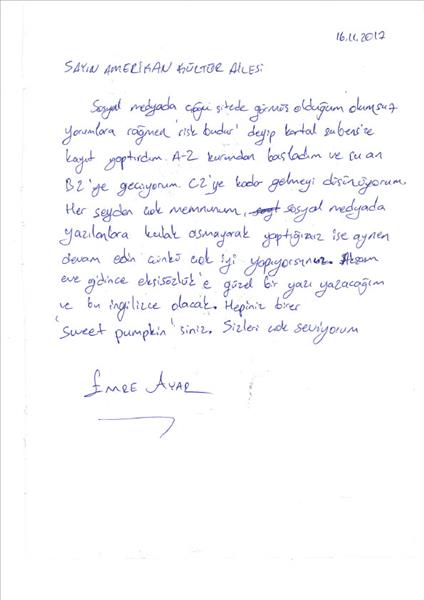 16.11.2017
SAYIN AMERİKAN KÜLTÜR AİLESİ
Sosyal medyada çoğu sitede görmüş olduğum olumsuz
yorumlara rağmen 'risk budur' deyip kartal şubenize
kayıt yaptırdım. A-2 kurundan başladım ve şu an
B2'ye geçiyorum. C2'ye kadar gelmeyi düşünüyorum.
Her şeyden çok memnunum, sosyal medyada
yazılanlara kulak asmayarak yaptığınız işe aynen
devam edin çünkü çok iyi yapıyorsunuz. Akşam
eve gidince ekşisözlük'e güzel bir yazı yazacağım
ve bu ingilizce olacak. Hepiniz birer
'sweet pumpkin' siniz. Sizleri çok seviyorum
EMRE AYAR